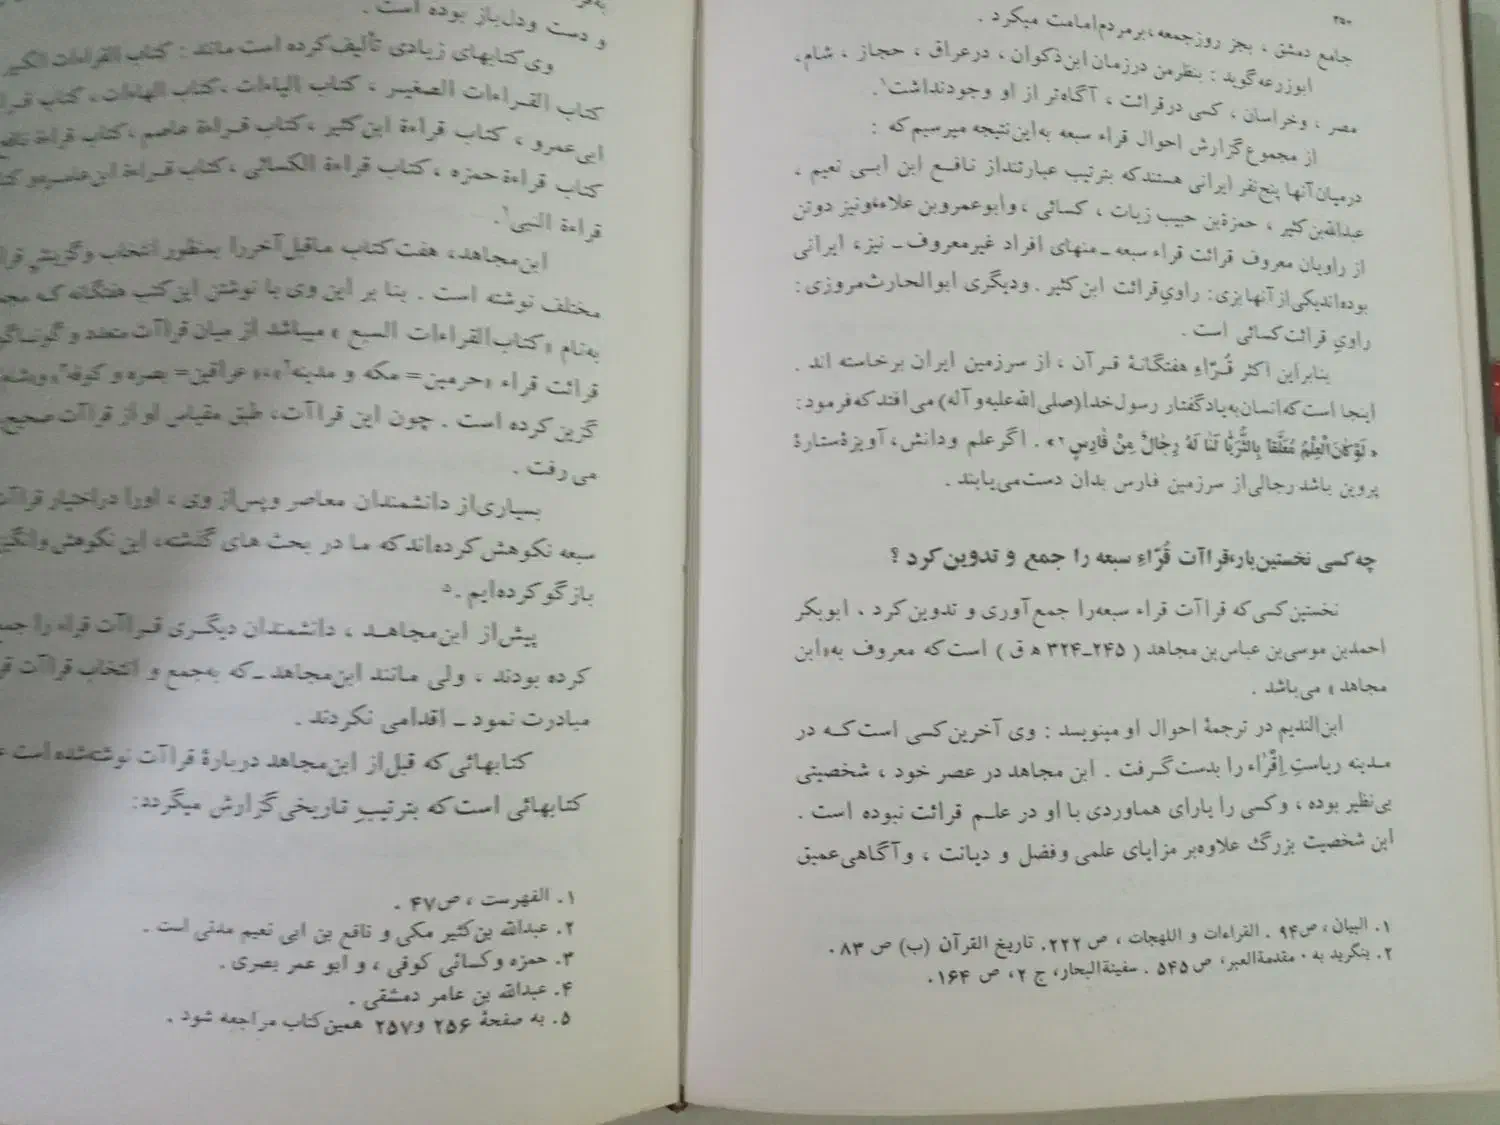 ۳۵۰
جامع دمشق ، بجز روزجمعه، برمردم امامت میکرد .
ابوزرعه گوید : بنظرمن درزمان ابن ذکوان ، درعراق ، حجاز ، شام،
مصر ، وخراسان ، کسی درقرائت ، آگاه‌تر از او وجودنداشت۱.
از مجموع گزارش احوال قراء سبعه به‌این نتیجه میرسیم که :
درمیان آنها پنج‌نفر ایرانی هستندکه بترتیب عبارتنداز نافع ابن ابی نعیم ،
عبدالله‌بن کثیر ، حمزةبن حبیب زیات ، کسائی ، وابوعمروبن علاء، ونیز دوتن
از راویان معروف قرائت قراء سبعه ـ منهای افراد غیرمعروف ـ نیز، ایرانی
بوده‌اندیکی از آنها بزی: راوي قرائت ابن کثیر . ودیگری ابوالحارث مروزی :
راوي قرائت کسائی است .
بنابراین اکثر قُـرّاءِ هفتگانهٔ قـرآن ، از سرزمین ایران برخاسته اند .
اینجا است که انسان به‌یاد گفتار رسول خدا(صلی الله علیه و آله) می افتد که فرمود :
« لَوْ كانَ الْعِلْمُ مُعَلَّقاً بِالثُّرَيّا لَنا لَهُ رِجالٌ مِنْ فارِسٍ ۲» . اگر علم ودانش، آویزهٔ ستارهٔ
پروین باشد رجالی از سرزمین فارس بدان دست می‌یابند .
چه کسی نخستین بار، قراآت قُرّاءِ سبعه را جمع و تدوین کرد ؟
نخستین کسی که قراآت قراء سبعه‌را جمع‌آوری و تدوین کرد ، ابوبکر
احمدبن موسی بن عباس بن مجاهد ( ۲۴۵ـ۳۲۴ ه ق ) است که معروف به «ابن
مجاهد » می‌باشد .
ابن‌الندیم در ترجمهٔ احوال او مینویسد : وی آخرین کسی است کـه در
مـدینه ریاستِ اِقْراء را بدست گـرفت . ابن مجاهد در عصر خود ، شخصیتی
بی‌نظیر بوده ، وکسی را یارای هماوردی با او در علـم قرائت نبوده است .
این شخصیت بزرگ علاوه‌بر مزایای علمی وفضل و دیانت ، وآگاهی عمیق
۱. البیان ، ص۹۴ . القراءات و اللهجات ، ص ۲۲۲. تاریخ القرآن (ب) ص ۸۳ .
۲. بنگرید به : مقدمةالعبر، ص ۵۴۵ . سفینةالبحار، ج ۲، ص ۱۶۴.
و دست ودل‌باز بوده است .
وی کتابهای زیادی تألیف کرده است مانند : کتاب القراءات الکبیر
کتاب القـراءات الصغیـر ، کتاب الیاءات ، کتاب الهاءات ، کتاب
ابی عمرو ، کتاب قراءة ابن کثیر ، کتاب قـراءة عاصم ، کتاب قراءة نافع
کتاب قراءة حمزه ، کتاب قراءة الکسائی ، کتاب قـراءة ابن عامـر
قراءة النبی۱.
ابن مجاهد، هفت کتاب ماقبل آخررا بمنظور انتخاب وگزینش
مختلف نوشته است . بنا بر این وی با نوشتن این کتب هفتگانه کـه
به‌نام « کتاب القراءات السبع » میباشد از میان قراآت متعدد و
قرائت قراء «حرمین= مکه و مدینه۲»، «عراقین= بصره و کوفه۳»
گزین کرده است . چون این قراآت، طبق مقیاس او از قراآت صحیح
می رفت .
بسیاری از دانشمندان معاصر وپس‌از وی ، اورا دراختیار
سبعه نکوهش کرده‌اندکه ما در بحث های گذشته، این نکوهش
بازگو کرده‌ایم .۵
پیش‌از ابن‌مجاهـد ، دانشمندان دیگـری قـراآت قراء را
کرده بودند ، ولی مـانند ابن‌مجاهد ـ که به‌جمع و انتخاب قراآت
مبادرت نمود ـ اقدامی نکردند .
کتابهائی که قبل‌از ابن‌مجاهد دربارهٔ قراآت نوشته‌شده است
کتابهائی است که بترتیبِ تاریخی گزارش میگردد:
۱. الفهرست ، ص۴۷ .
۲. عبدالله بن کثیر مکی و نافع بن ابی نعیم مدنی است .
۳. حمزه وکسائی کوفی ، و ابو عمر بصری .
۴. عبدالله بن عامر دمشقی .
۵. به صفحهٔ ۲۵۶ و۲۵۷ همین کتاب مراجعه شود .